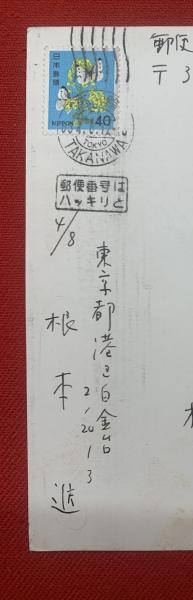 郵便
〒3
日本郵便
NIPPON 40
TOKYO
TAKANAWA
郵便番号は
ハッキリと
4/8
東京都港区白金台
2/20/3
根本進